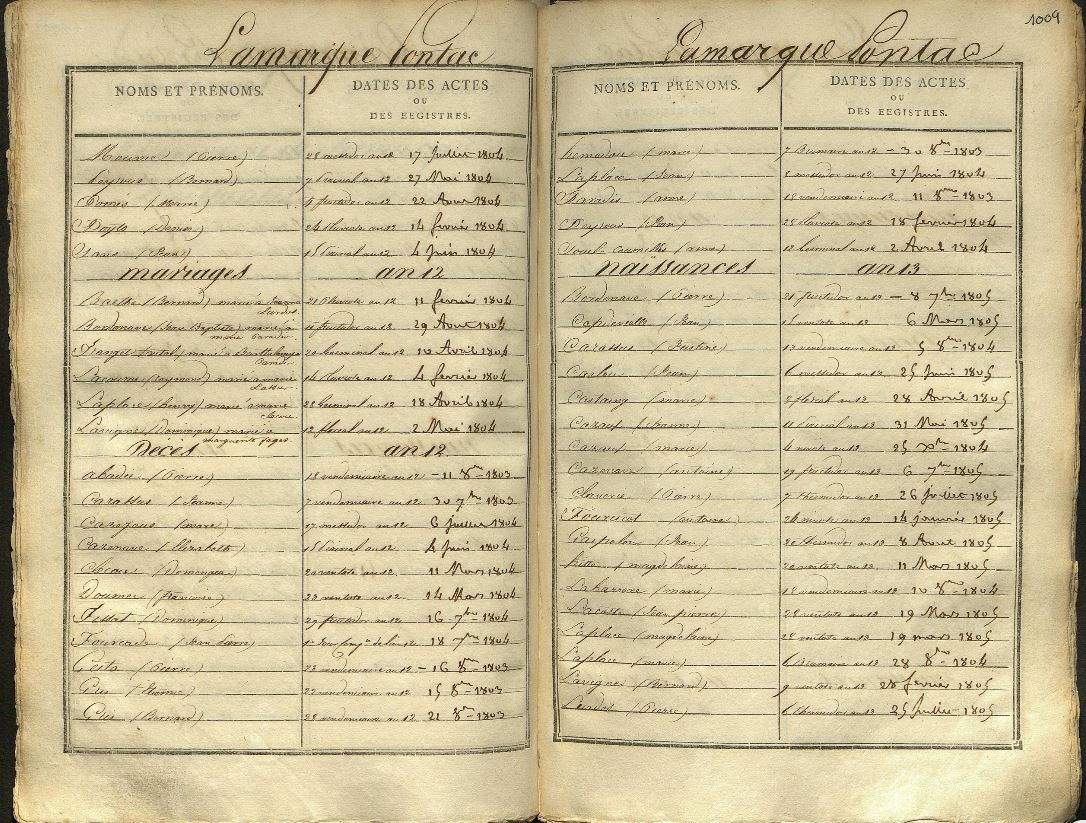 Lamarque Pontac
NOMS ET PRÉNOMS.
DATES DES ACTES
OU
DES REGISTRES.
Mourné (Pierre) 28 messidor an 12 17 juillet 1804
(Bernard) 7 an 12 27 Mai 1804
Pomés 4 fructidor an 12 22 Aout 1804
24 pluviose an 12 14 fevrier 1804
(Jean) 15 an 12 4 juin 1804
mariages an 12
Barthe (Bernard) marié à Jeanne
21 Pluviose an 12 11 fevrier 1804
Bordenave (Jean Baptiste) marié à
marie
11 fructidor an 12 29 Aout 1804
marié à
20 Germinal an 12 10 Avril 1804
Lacoume (Raymond) marié a marie
14 pluviose an 12 4 fevrier 1804
Laplace marié a marie
28 Germinal an 12 18 Avril 1804
Lavigne (Dominique) marié à
marguerite Pages
12 floreal an 12 2 Mai 1804
Décés an 12
abadie (Pierre) 18 vendemiaire an 12 - 11 8bre 1803
Carassus (Jeanne) 7 vendemiaire an 12 30 7bre 1803
(marie) 17 messidor an 12 6 juillet 1804
Cazenave (Elizabeth) 15 an 12 4 juin 1804
(Dominique) 20 ventose an 12 11 Mars 1804
Doumec (francoise) 23 ventose an 12 14 Mars 1804
(Dominique) 29 fructidor an 12 16 7bre 1804
Fourcade (Jean Pierre) 1er jour compre de l'an 12 18 7bre 1804
Gesta (Pierre) 23 vendemiaire an 12 - 16 8bre 1803
22 vendemiaire an 12 15 8bre 1803
(Bernard) 28 vendemiaire an 12 21 8bre 1803
1009
Lamarque Pontac
NOMS ET PRÉNOMS.
DATES DES ACTES
OU
DES REGISTRES.
(marie) 7 Brumaire an 12 - 30 8bre 1803
Laplace (Jean) 8 messidor an 12 27 juin 1804
Paradis (anne) 18 vendemiaire an 12 11 8bre 1803
Peyrous (Jean) 28 pluviose an 12 18 fevrier 1804
12 Germinal an 12 2 Avril 1804
naissances an 13
Bordenave (Pierre) 21 fructidor an 13 - 8 7bre 1805
(Jean) 15 ventose an 13 6 Mars 1805
Carassus (Justine) 13 vendemiaire an 13 5 8bre 1804
(Jean) 6 messidor an 13 25 juin 1805
Castaing (marie) 8 floreal an 13 28 Avril 1805
Cazaux (Jeanne) 11 an 13 31 Mai 1805
Cazaux (marie) 4 nivose an 13 25 Xbre 1804
Cazenave (antoine) 19 fructidor an 13 6 7bre 1805
Claverie (Pierre) 7 thermidor an 13 26 juillet 1805
Fouriscot (antoine) 24 nivose an 13 14 janvier 1805
(Jean) 20 thermidor an 13 8 Aout 1805
(magdelaine) 20 ventose an 13 11 Mars 1805
Labarrere (marie) 18 vendemiaire an 13 10 8bre 1804
Lacoste (Jean pierre) 28 ventose an 13 19 Mars 1805
Laplace (magdelaine) 28 ventose an 13 19 mars 1805
Laplace (marie) 6 Brumaire an 13 28 8bre 1804
Lavigne (Bernard) 9 ventose an 13 28 fevrier 1805
(Pierre) 6 thermidor an 13 25 juillet 1805